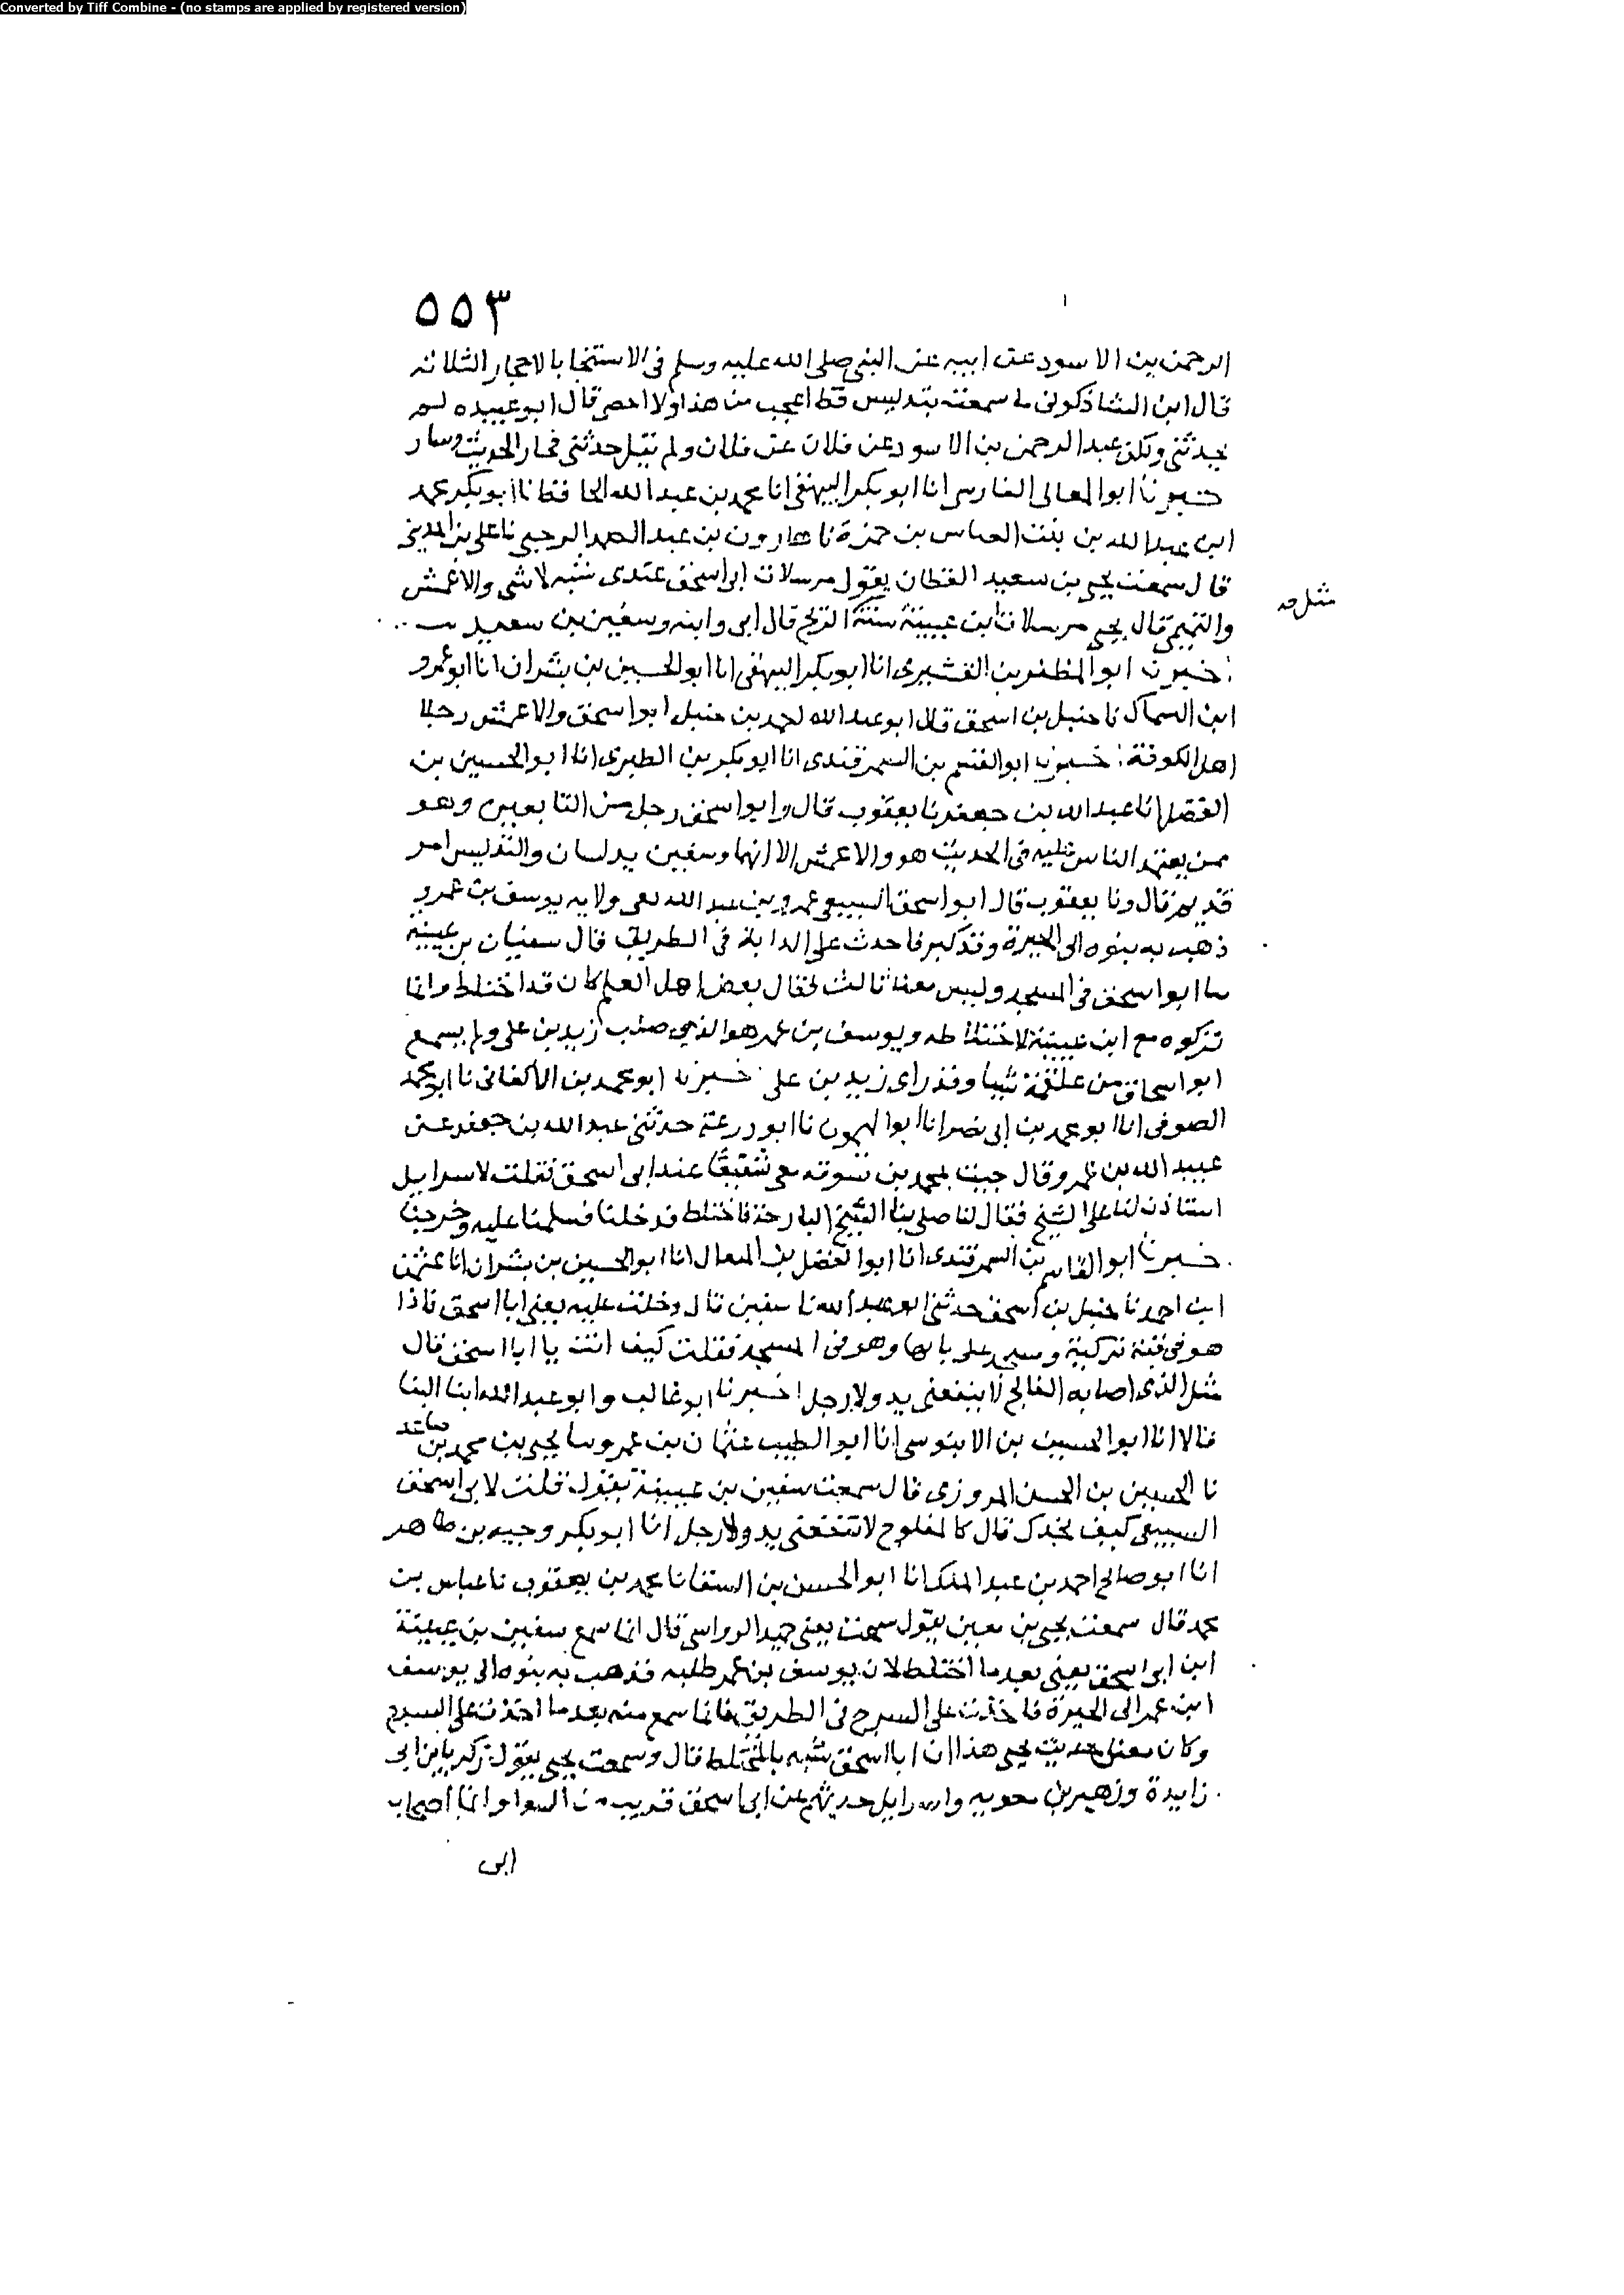 Converted by Tiff Combine - (no stamps are applied by registered version)
٥٥٣
الرحمن بن الاسود عن ابيه عن النبي صلى الله عليه وسلم في الاستنجا بالاحجار الثلاثه
قال ابن الشاذكوني ما سمعت بتدليس قط اعجب من هذا ولا اخص قال ابو عبيده لم
يحدثني ولكن عبد الرحمن بن الاسود عن فلان عن فلان ولم يقل حدثني فجاز الحديث وسار
خبرنا ابو المعالي الفارسي انا ابو بكر البيهقي انا محمد بن عبد الله الحافظ نا ابو بكر محمد
ابن عبد الله بن بنت العباس بن حمزة نا هارون بن عبد الصمد الرحبي نا علي بن المديني
قال سمعت يحيى بن سعيد القطان يقول مرسلات ابي اسحق عندي شبه لا شي والاعمش
مثل صه
والتيمي قال يحيى مرسلات ابن عيينة شبه الريح قال اي والله وسفين بن سعيد
اخبرنا ابو المظفر بن القشيري انا ابو بكر البيهقي انا ابو الحسين بن بشران انا ابو عمرو
ابن السماك نا حنبل بن اسحق قال ابو عبد الله احمد بن حنبل ابو اسحق والاعمش رجلا
اهل الكوفة اخبرنا ابو القسم بن السمرقندي انا ابو بكر بن الطبري انا ابو الحسين بن
الفضل انا عبد الله بن جعفر نا يعقوب قال وابو اسحق رجل من التابعين وهو
ممن يعتمد الناس عليه في الحديث هو والاعمش الا انهما وسفين يدلسان والتدليس امر
قديم قال ونا يعقوب قال ابو اسحق السبيعي عمرو بن عبد الله بقي ولايه يوسف بن عمرو
ذهب به بنوه الى الحيرة وقد كبر فاحدث على الدابة في الطريق قال سفيان بن عيينه
نا ابو اسحق في المسجد وليس معنا ثالث فقال بعض اهل العلم كان قد اختلط وانما
تركوه مع ابن عيينة لاختلاطه ويوسف بن عمر هو الذي صلب زيد بن علي ولم يسمع
ابو اسحاق من علقمة شيا وقد راى زيد بن علي اخبرنا ابو محمد بن الاكفاني نا ابو محمد
الصوفي انا ابو محمد بن ابي نصر انا ابو الميمون نا ابو زرعة حدثني عبد الله بن جعفر عن
عبيد الله بن عمرو قال جيت بمحمد بن سوقه معي شفيعا عند ابي اسحق فقلت لاسرايل
استاذن لنا على الشيخ فقال لنا صلى بنا الشيخ البارحة فاختلط فدخلنا فسلمنا عليه وخرجنا
خبرنا ابو القاسم بن السمرقندي انا ابو الفضل بن البقال انا ابو الحسين بن بشران انا عثمن
ابن احمد نا حنبل بن اسحق حدثني ابو عبد الله نا سفين قال دخلت عليه يعني ابا اسحق فاذا
هو في قبة تركية ومسجد على بابها وهو في المسجد فقلت كيف انت يا ابا اسحق قال
مثل الذي اصابه الفالج لا ينفعني يد ولا رجل اخبرنا ابو غالب وابو عبد الله ابنا البنا
قالا انا ابو الحسين بن الابنوسي انا ابو الطيب عثمان بن عمرو نا يحيى بن محمد بن صاعد
نا الحسين بن الحسن المروزي قال سمعت سفين بن عيينة يقول قلت لابي اسحق
السبيعي كيف نجدك قال كالمفلوج لا تنفعني يد ولا رجل انا ابو بكر وجيه بن طاهر
انا ابو صالح احمد بن عبد الملك انا ابو الحسن بن السقا نا محمد بن يعقوب نا عباس بن
محمد قال سمعت يحيى بن معين يقول سمعت يعني حميد الرواسي قال انما سمع سفين بن عيينة
ابن ابي اسحق يعني بعد ما اختلط لان يوسف بن عمر طلبه فذهب به بنوه الى يوسف
ابن عمر الى الحيرة فاخذت على السرج في الطريق فانما سمع منه بعد ما اخذت على السرج
وكان معنى حديث يحيى هذا ان ابا اسحق شبه بالمختلط قال وسمعت يحيى يقول زكريا بن ابي
زايدة وزهير بن معويه واسرايل حديثهم عن ابي اسحق قريب من السوا وانما اصحاب
ابي